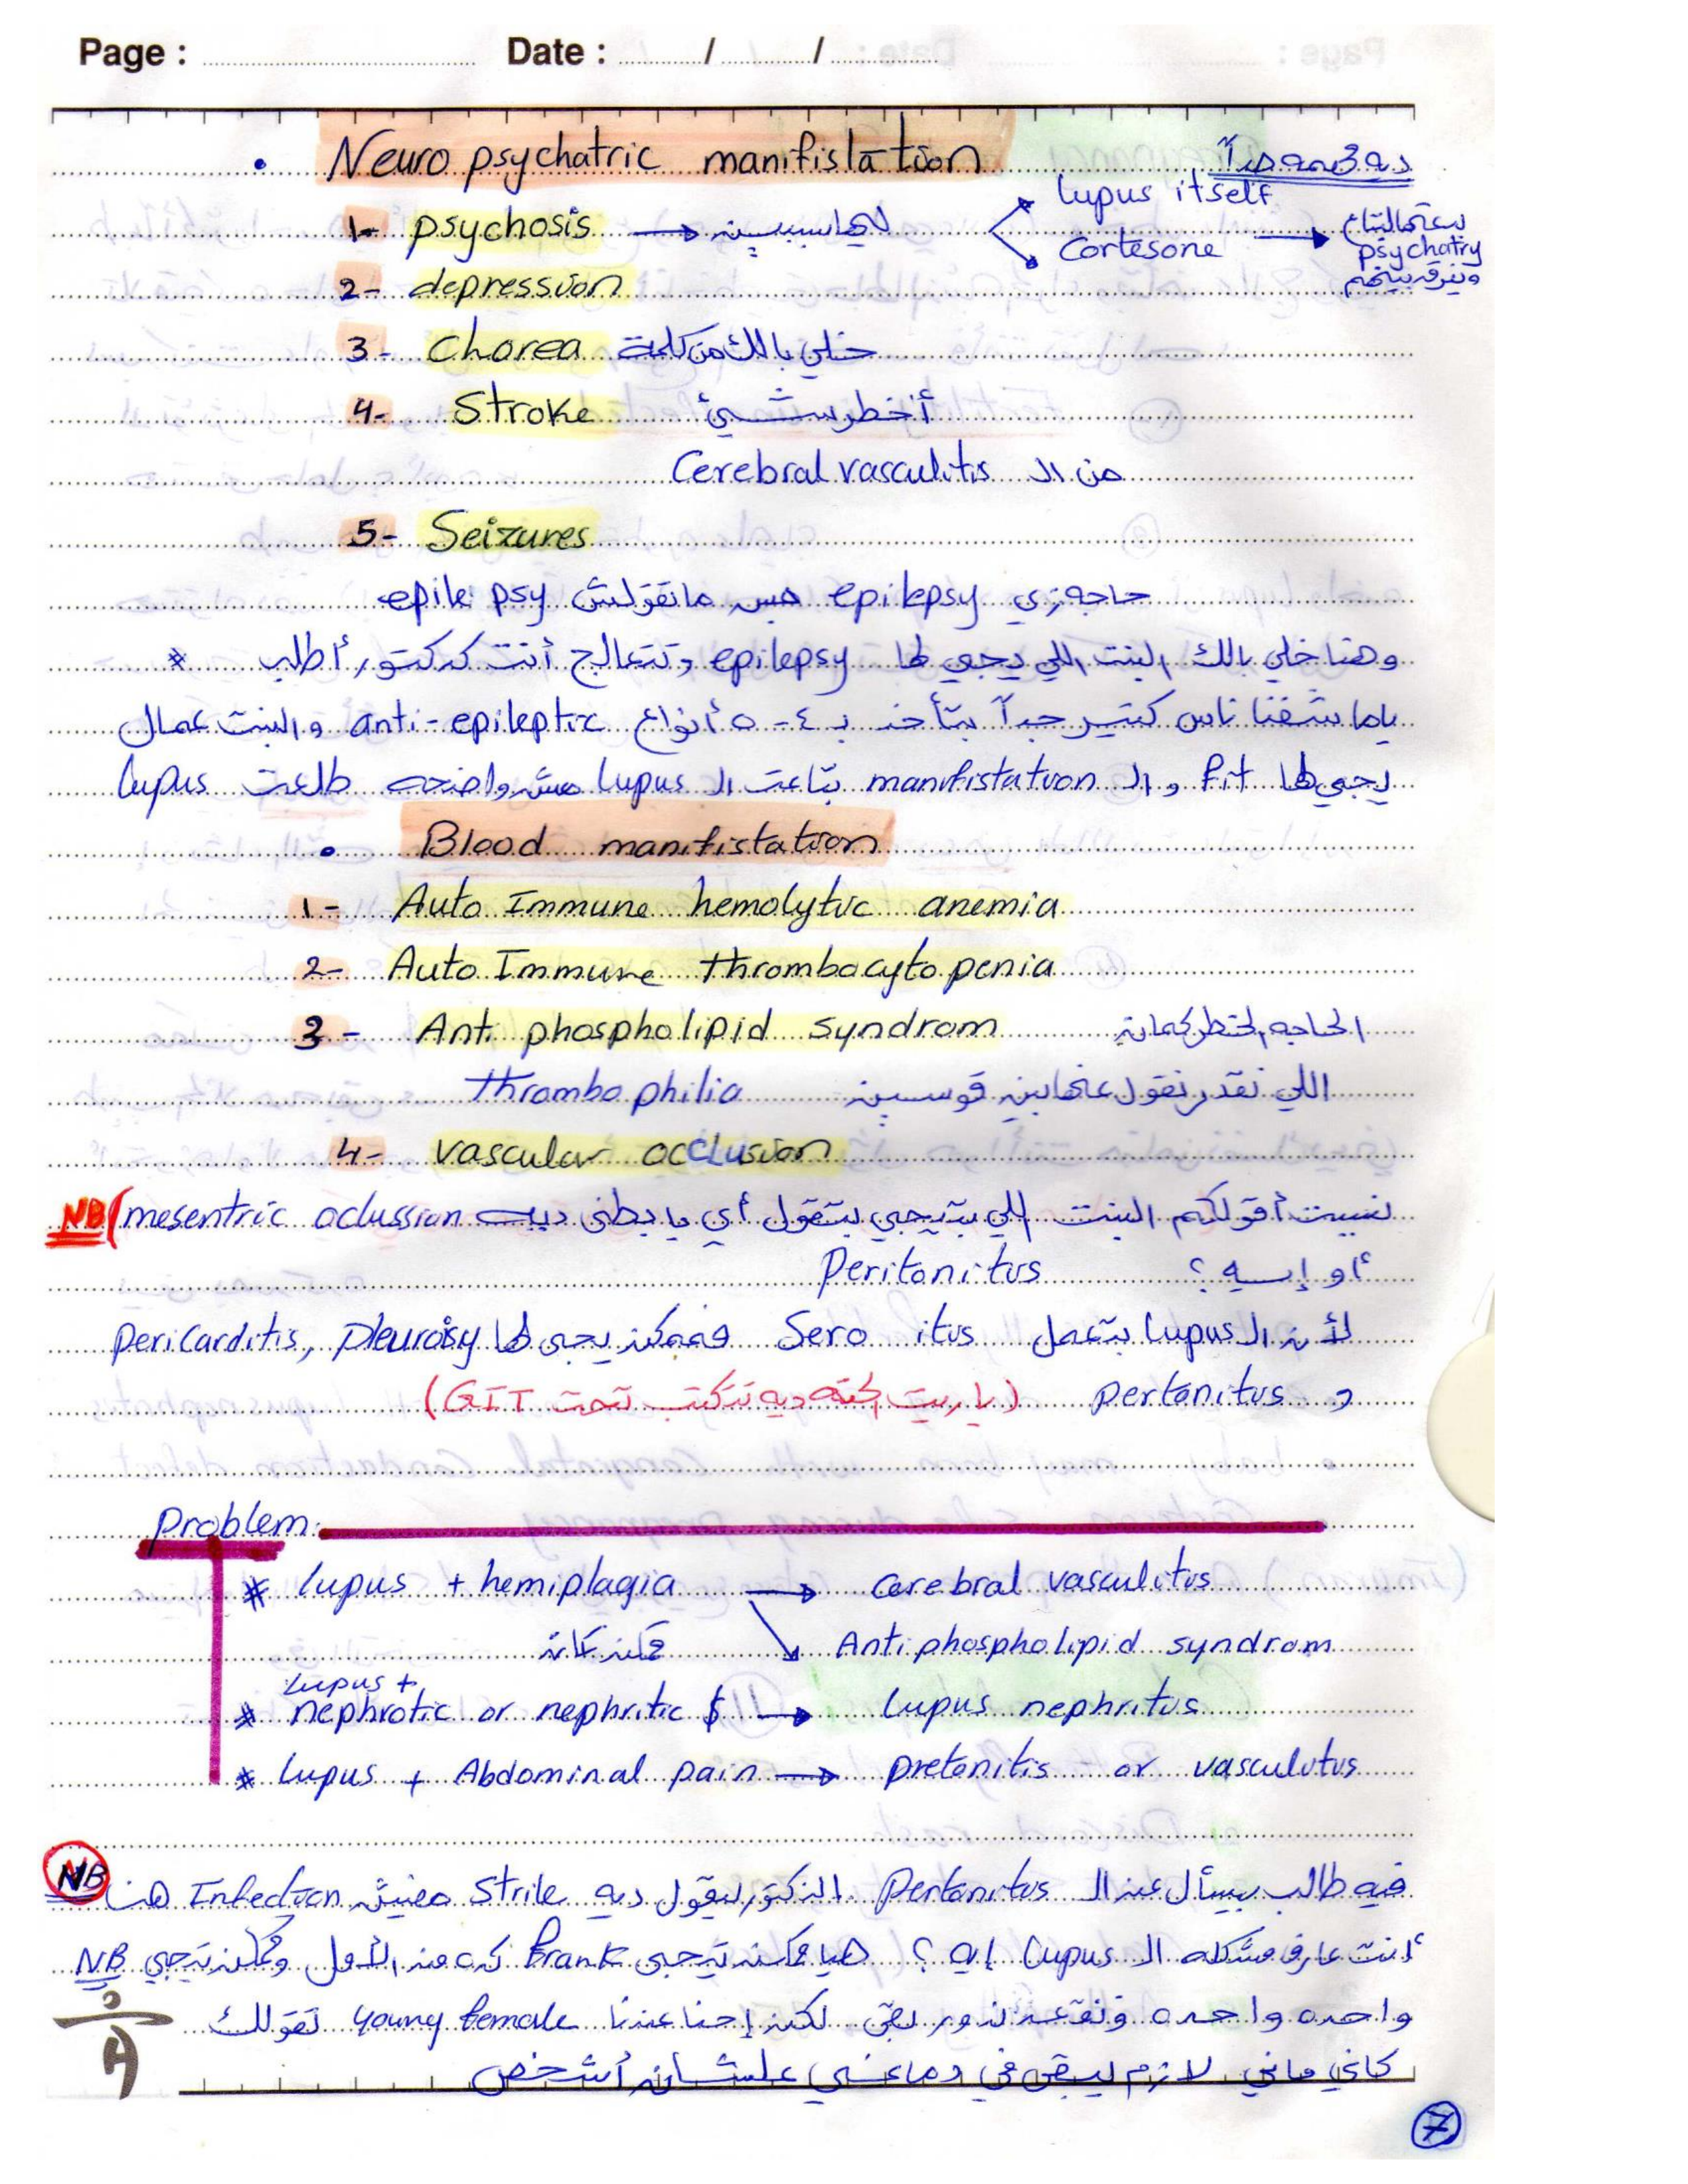 Page : Date : / /
• Neuro psychatric manifistation ديه مهمه جداً
1- psychosis → ليها سببين lupus itself
Cortesone → بتوع psychatry ونفرق بينهم
2- depression
3- Chorea خلي بالك من كلمة
4- Stroke أخطر شيئ
من ال Cerebral vasculitis
5- Seizures
حاجه زي epilepsy بس مانقولش epile psy
* وهنا خلي بالك البنت اللي يجي لها epilepsy وتتعالج أنت كدكتور أطلب
ياما شفنا ناس كتير جداً بتأخد ب ٤ - ٥ أنواع anti-epileptic والبنت عمال
يجي لها fit و ال manifistation بتاعت ال lupus مش واضحه طلعت lupus
• Blood manifistation
1- Auto Immune hemolytic anemia
2- Auto Immune thrombocyto penia
3- Anti phospholipid syndrom الحاجه الخطر كمان
اللي نقدر نقول عنها بين قوسين thrombo philia
4- vascular occlusion
NB( نسيت أقولكم البنت اللي بتيجي بتقول أي يا بطني ديه mesentric oclussion
أو إيه ؟ Peritonitis
لأن ال lupus بتعمل Sero itis فممكن يجي لها Pleuroisy , pericarditis
و pertonitis (ياريت الحته ديه تتكتب تحت GIT)
Problem:
* lupus + hemiplagia → Cerebral vasculitis
ممكن كان ↘ Anti phospholipid syndrom
lupus +
* nephrotic or nephritic $ → lupus nephritis
* lupus + Abdominal pain → pretonitis or vasculitis
NB فيه طالب بيسأل عن ال Pertonitis الدكتور بيقول ديه Strile مفيش Infection هنا
NB أنت عارف مشكله ال lupus إيه ؟ هيا ممكن تيجي frank كده من الأول وممكن تيجي
واحده واحده ونقعد ندور بقى لكن إحنا عندنا young female تقولك
كاني ماني لازم يبقى في دماغي علشان أشخص
7